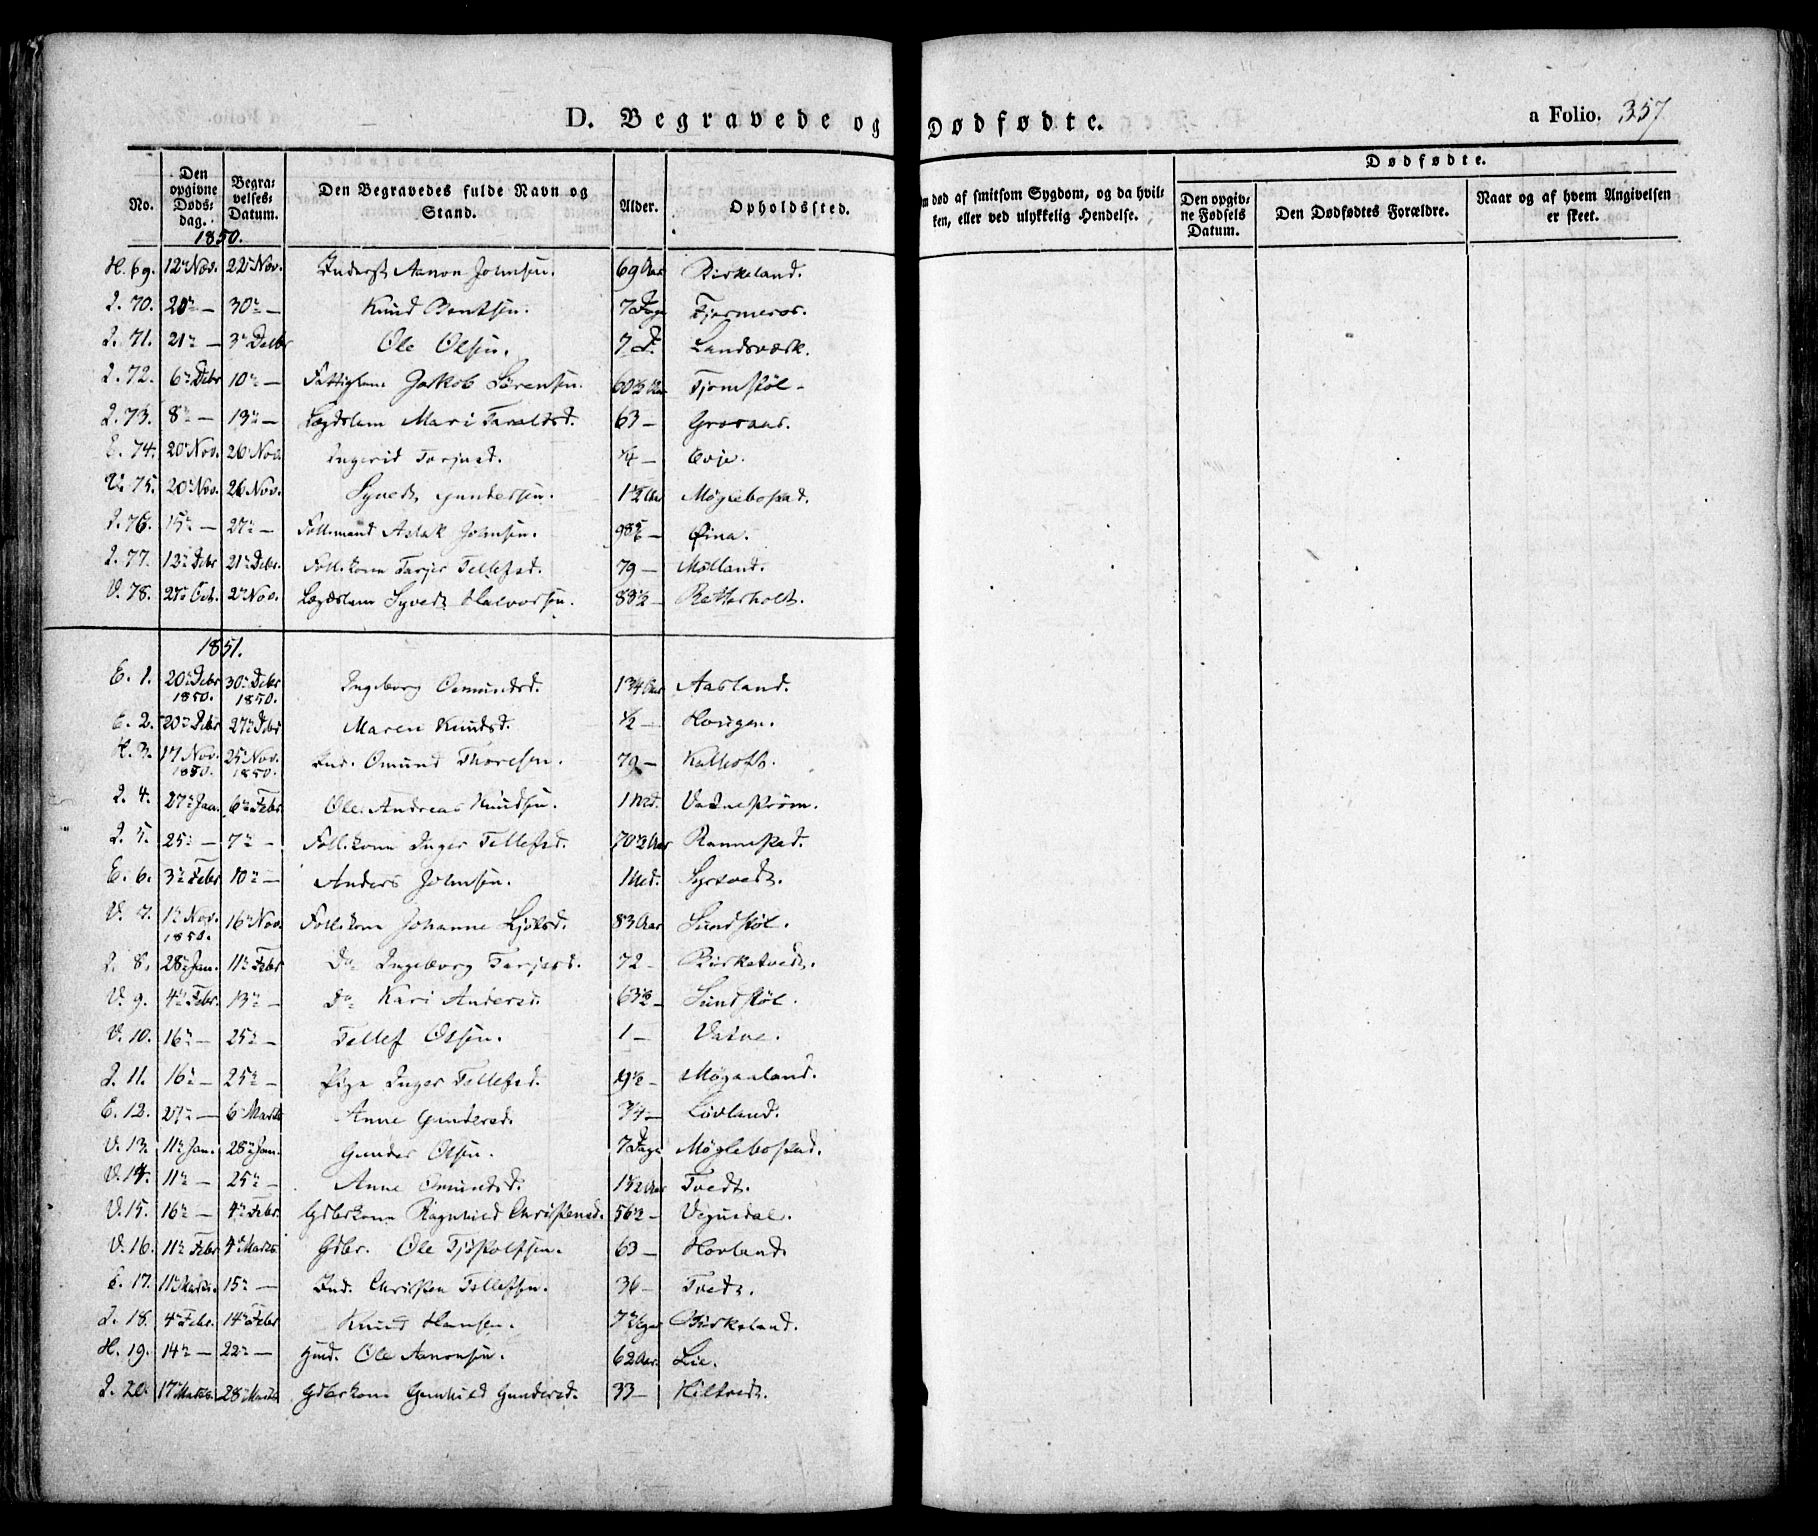 D. Begravede og Dødfødte.
a Folio. 357
No.
Den opgivne Døds-dag.
Begra-velses-Datum.
Den Begravedes fulde Navn og Stand.
Alder.
Opholdssted.
død af smitsom Sygdom, og da hvil-ken, eller ved ulykkelig Hendelse.
Dødfødte.
Den opgiv-ne Fødsels Datum.
Den Dødfødtes Forældre.
Naar og af hvem Angivelsen er skeet.
1850.
H. 69. 12 Nov. 22 Nov. Inderst Aanon Johnsen. 69 Aar Birkeland.
70. 20 — 30 — Knud Bentsen. 7 Dage Fjermeros.
71. 21 — 3 Decbr Ole Olsen. 7 D. Landsværk.
72. 6 Debr 10 — Fattiglem Jakob Sørensen. 60½ Aar Tjomstøl
73. 8 — 13 — Lægdslem Mari Taraldsd. 63 — Grosaas.
E. 74. 20 Nov. 26 Nov. Ingerid Tarjusd. ¼ — Evje.
V. 75. 20 Nov. 26 Nov. Syvert Gundersen. 1½ Aar Møglebostad.
76. 15 — 27 — Follmand Aslak Johnsen. — Øina.
77. 12 Debr 21 Debr. Follekone Tarjer Tellefsd. 79 — Mølland.
V. 78. 27 Oct. 2 Nov. Lægdslem Syvert Halvorsen. 83½ — Retterholt.
1851.
E. 1. 20 Debr 1850. 30 Debr 1850. Ingeborg Omundsd. 1¾ Aar Aasland.
E. 2. 20 Debr 27 Debr Maren Knudsd. ½ — Hougen.
H. 3. 17 Nov. 1850. 25 Nov. 1850. Ind. Omund Thoresen. 79 — Kalholt.
4. 27 Jan. 6 Febr. Ole Andreas Knudsen. 1 Md. Vatnestrøm.
5. 25 — 7 — Follekone Inger Tellefsd. 70½ Aar Rannestad.
E. 6. 3 Febr 10 — Anders Johnsen. 1 Md. Syrtvedt.
V. 7. 1 Nov. 1850. 16 Nov. Follekone Johanne Ljøtsd. 83 Aar Sundstøl.
8. 28 Jan. 11 Febr Do Ingeborg Tarjusd. 72 — Birketvedt.
V. 9. 4 Febr. 13 — Do Kari Andersd. 63½ — Sundstøl.
V. 10. 16 — 25 — Tellef Olsen. 1 — Vatne.
11. 16 — 25 — Pige Inger Tellefsd. — Møgaaland.
E. 12. 27 — 6 Marts Anne Gundersd. ¾ — Løvland.
V. 13. 11 Jan. 28 Jan. Gunder Olsen. 7 Dage Møglebostad.
V. 14. 11 — 25 — Anne Omundsd. 1½ Aar Tvedt.
V. 15. 16 — 4 Febr. Gdbrkone Ragnhild Christensd. 56½ — Vegusdal.
V. 16. 11 Febr 4 Marts Gdbr. Ole Tjøstolfsen. 63 — Hovland.
E. 17. 11 Marts. 15 — Ind. Christen Tellefsen. 36 — Tvedt.
18. 4 Febr. 14 Febr Knud Hansen. 7 Uger Birkeland.
H. 19. 14 — 22 — Huusmd. Ole Aanonsen. 62 Aar. Lie.
20. 17 Marts. 28 Marts Gdbrkone Gunhild Gundersd. 33 — Hiltvedt.